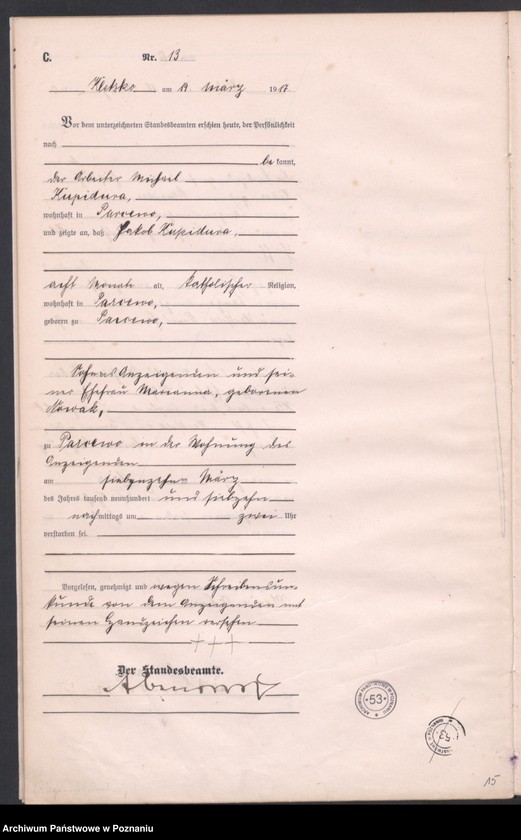 C. Nr. 13
Kletzko am 19 März 1917
Vor dem unterzeichneten Standesbeamten erschien heute, der Persönlichkeit
nach
be kannt,
der Arbeiter Michael
Kupidura,
wohnhaft in Parcewo,
und zeigte an, daß Jakob Kupidura,
acht Monate alt, katholischer Religion,
wohnhaft in Parcewo,
geboren zu Parcewo,
Sohn des Anzeigenden und sei-
ner Ehefrau Marianna, geborenen
Nowak,
zu Parcewo in der Wohnung des
Anzeigenden
am siebzehn März
des Jahres tausend neunhundert und siebzehn
nach mittags um zwei Uhr
verstorben sei.
Vorgelesen, genehmigt und wegen Schreibensun-
kunde von dem Anzeigenden mit
seinem Handzeichen versehen
+ + +
Der Standesbeamte.
53
53
15
Archiwum Państwowe w Poznaniu